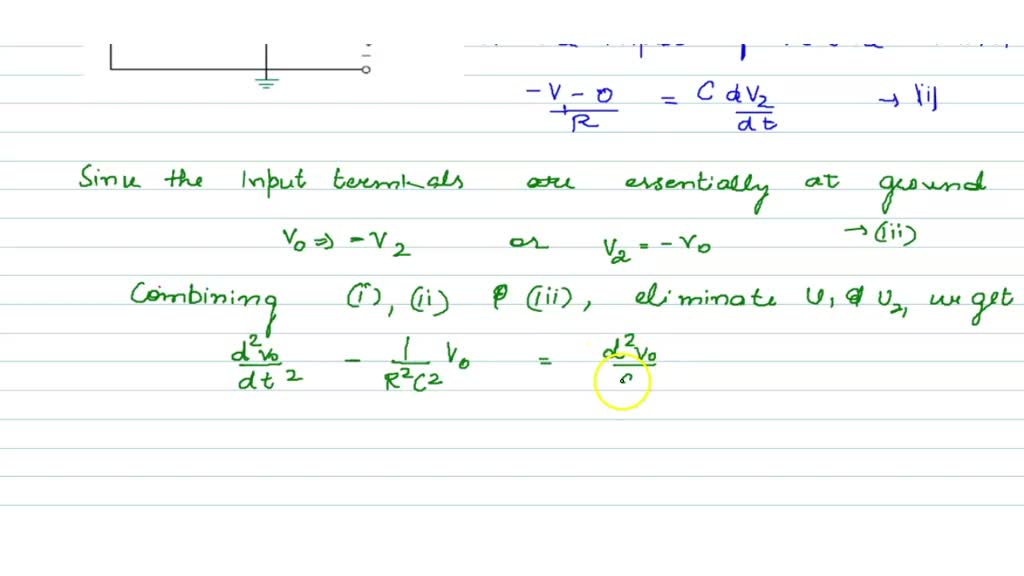 -V - 0 / R = C dV2/dt → (ii)
Sinu the Input terminals are essentially at ground
V0 ⇒ -V2 or V2 = -V0 → (iii)
Combining (i), (ii) & (iii), eliminate U, & U2, we get
d²v0/dt² - 1/R²C² V0 = d²v0